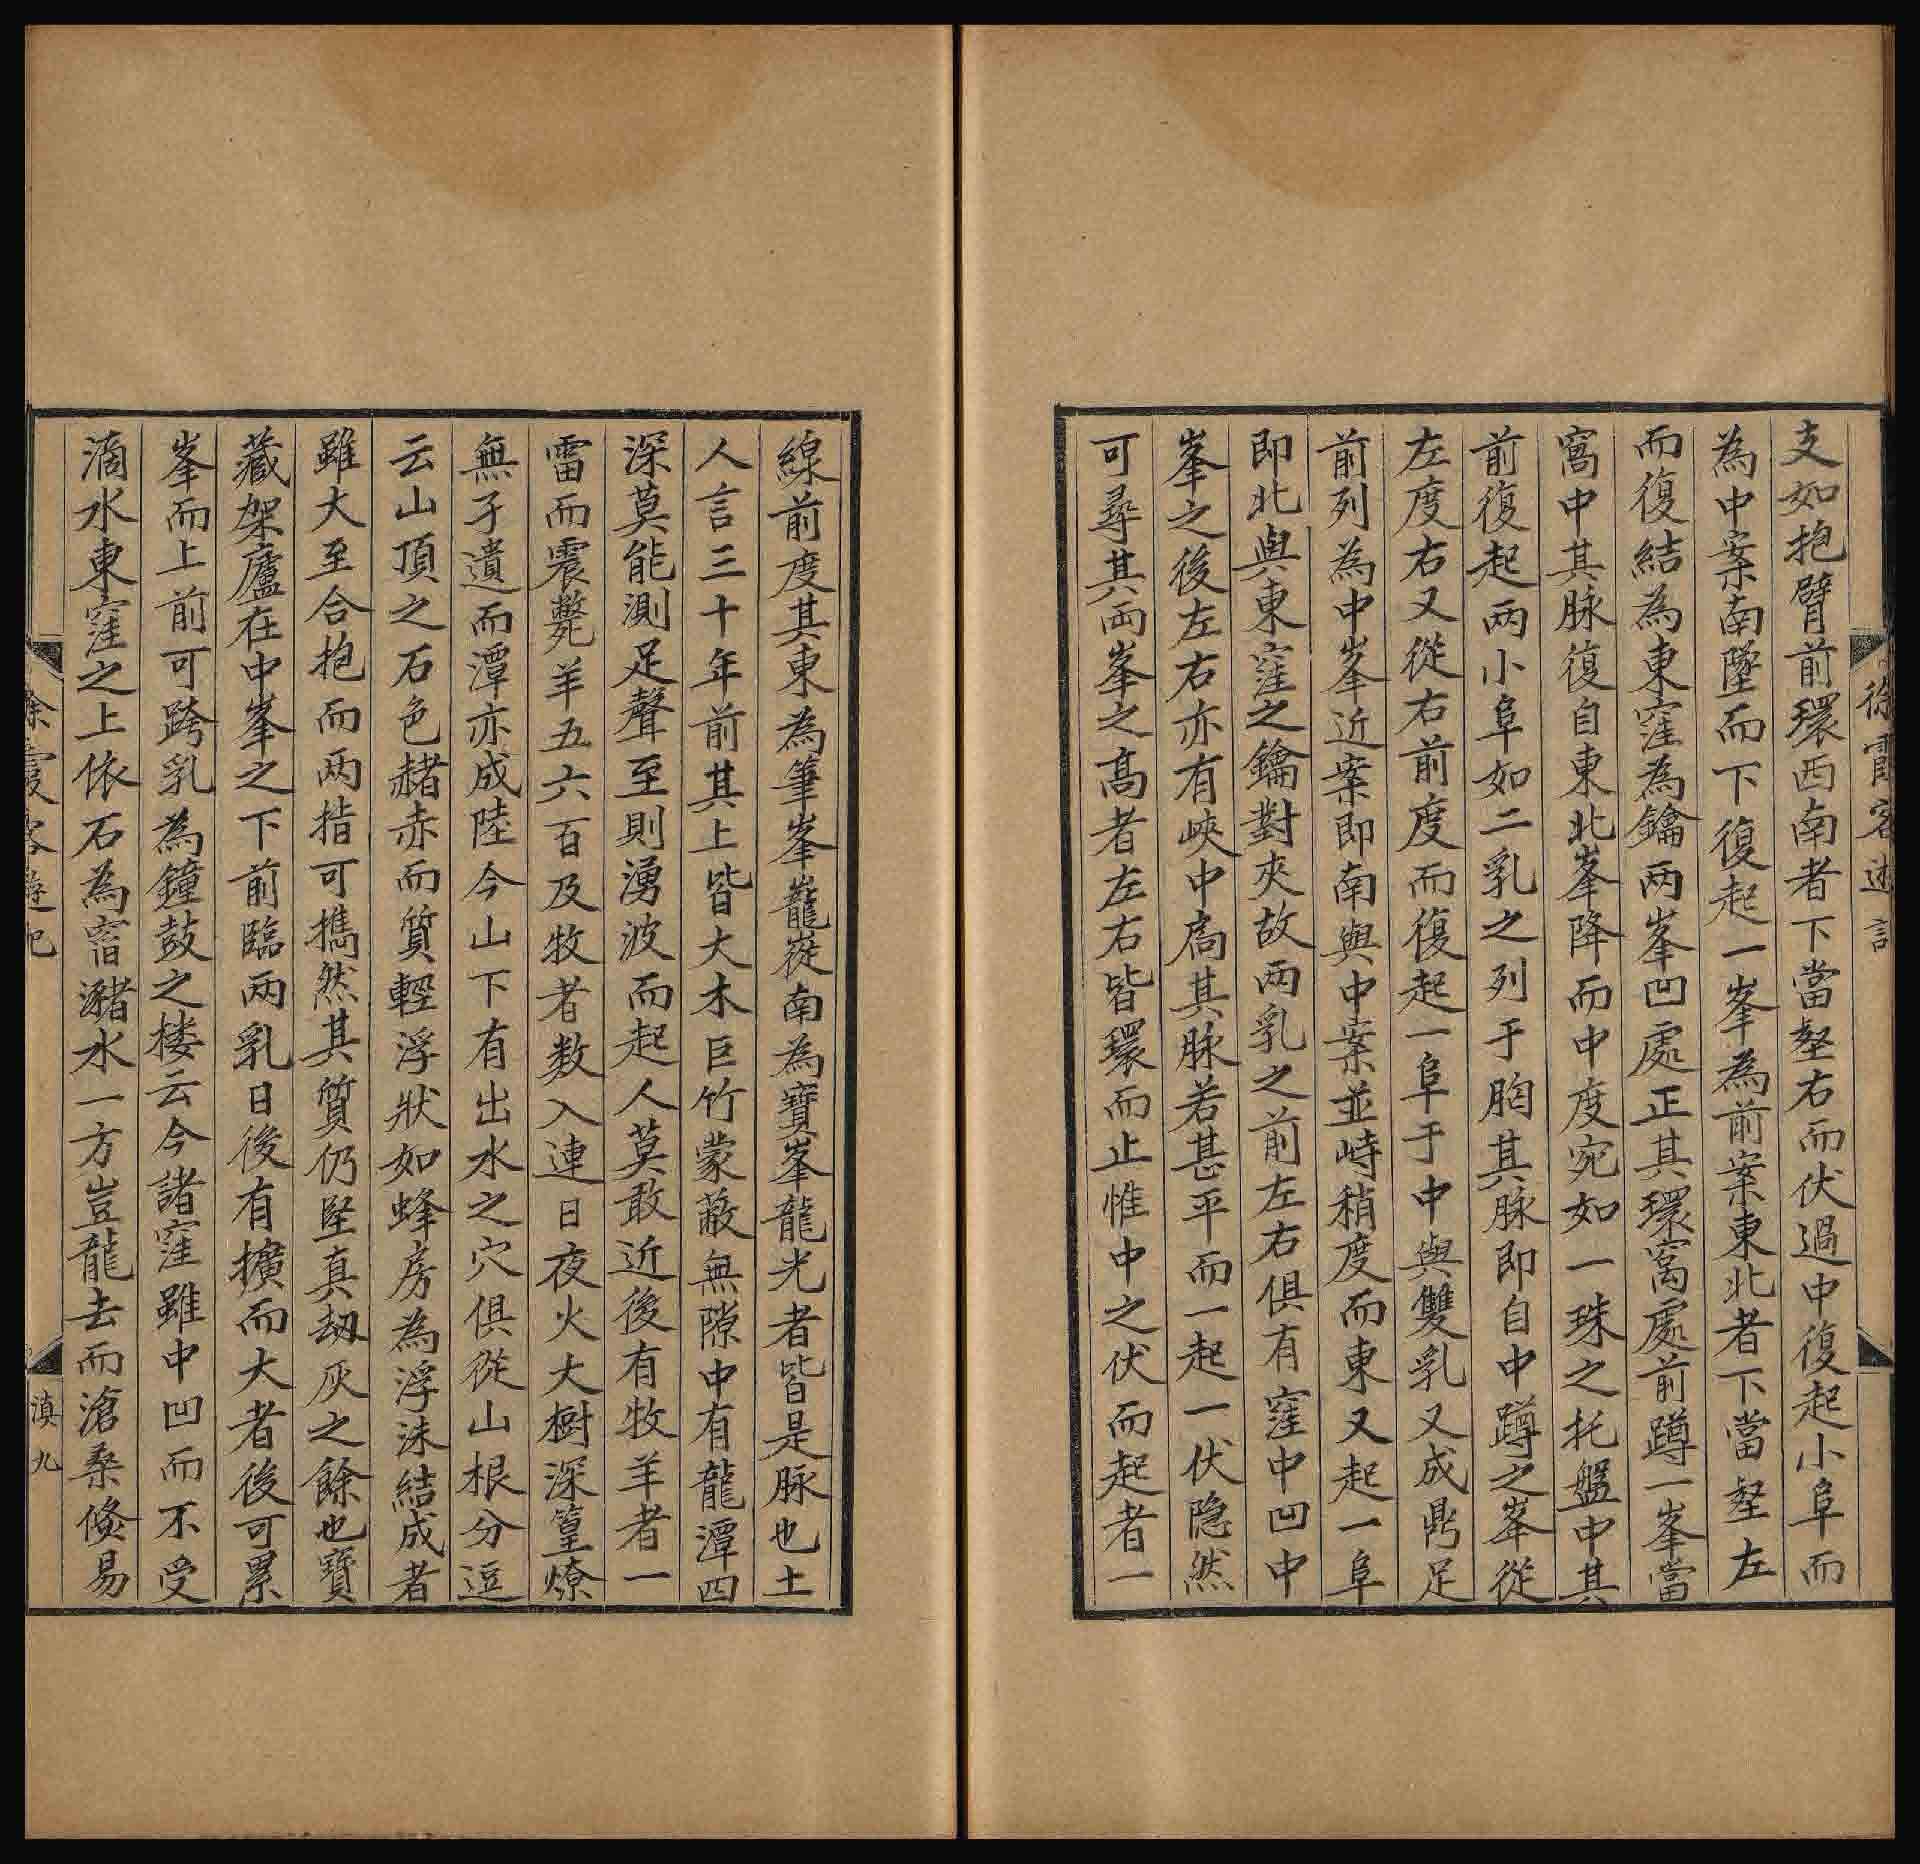 支如抱臂前環西南者下當壑右而伏過中復起小阜而
為中案南墜而下復起一峯為前案東北者下當壑左
而復結為東窪為鑰两峯凹處正其環窩處前蹲一峯當
窩中其脉復自東北峯降而中度宛如一珠之托盤中其
前復起两小阜如二乳之列于胸其脉即自中蹲之峯從
左度右又從右前度而復起一阜于中與雙乳又成鼎足
前列為中峯近案即南與中案並峙稍度而東又起一阜
即北與東窪之鑰對夾故两乳之前左右俱有窪中凹中
峯之後左右亦有峽中扃其脉若甚平而一起一伏隐然
可尋其两峯之高者左右皆環而止惟中之伏而起者一
線前度其東為筆峯巃嵷南為寶峯龍光者皆是脉也土
人言三十年前其上皆大木巨竹蒙蔽無隙中有龍潭四
深莫能測足聲至則湧波而起人莫敢近後有牧羊者一
雷而震斃羊五六百及牧者数入連日夜火大樹深篁燎
無孑遺而潭亦成陸今山下有出水之穴俱從山根分逗
云山頂之石色赭赤而質輕浮狀如蜂房為浮沫結成者
雖大至合抱而两指可攜然其質仍堅真刼灰之餘也寶
藏架廬在中峯之下前臨两乳日後有擴而大者後可累
峯而上前可跨乳為鐘鼓之楼云今諸窪雖中凹而不受
滴水東窪之上依石為窞瀦水一方豈龍去而滄桑倐易
徐霞客遊記
滇九